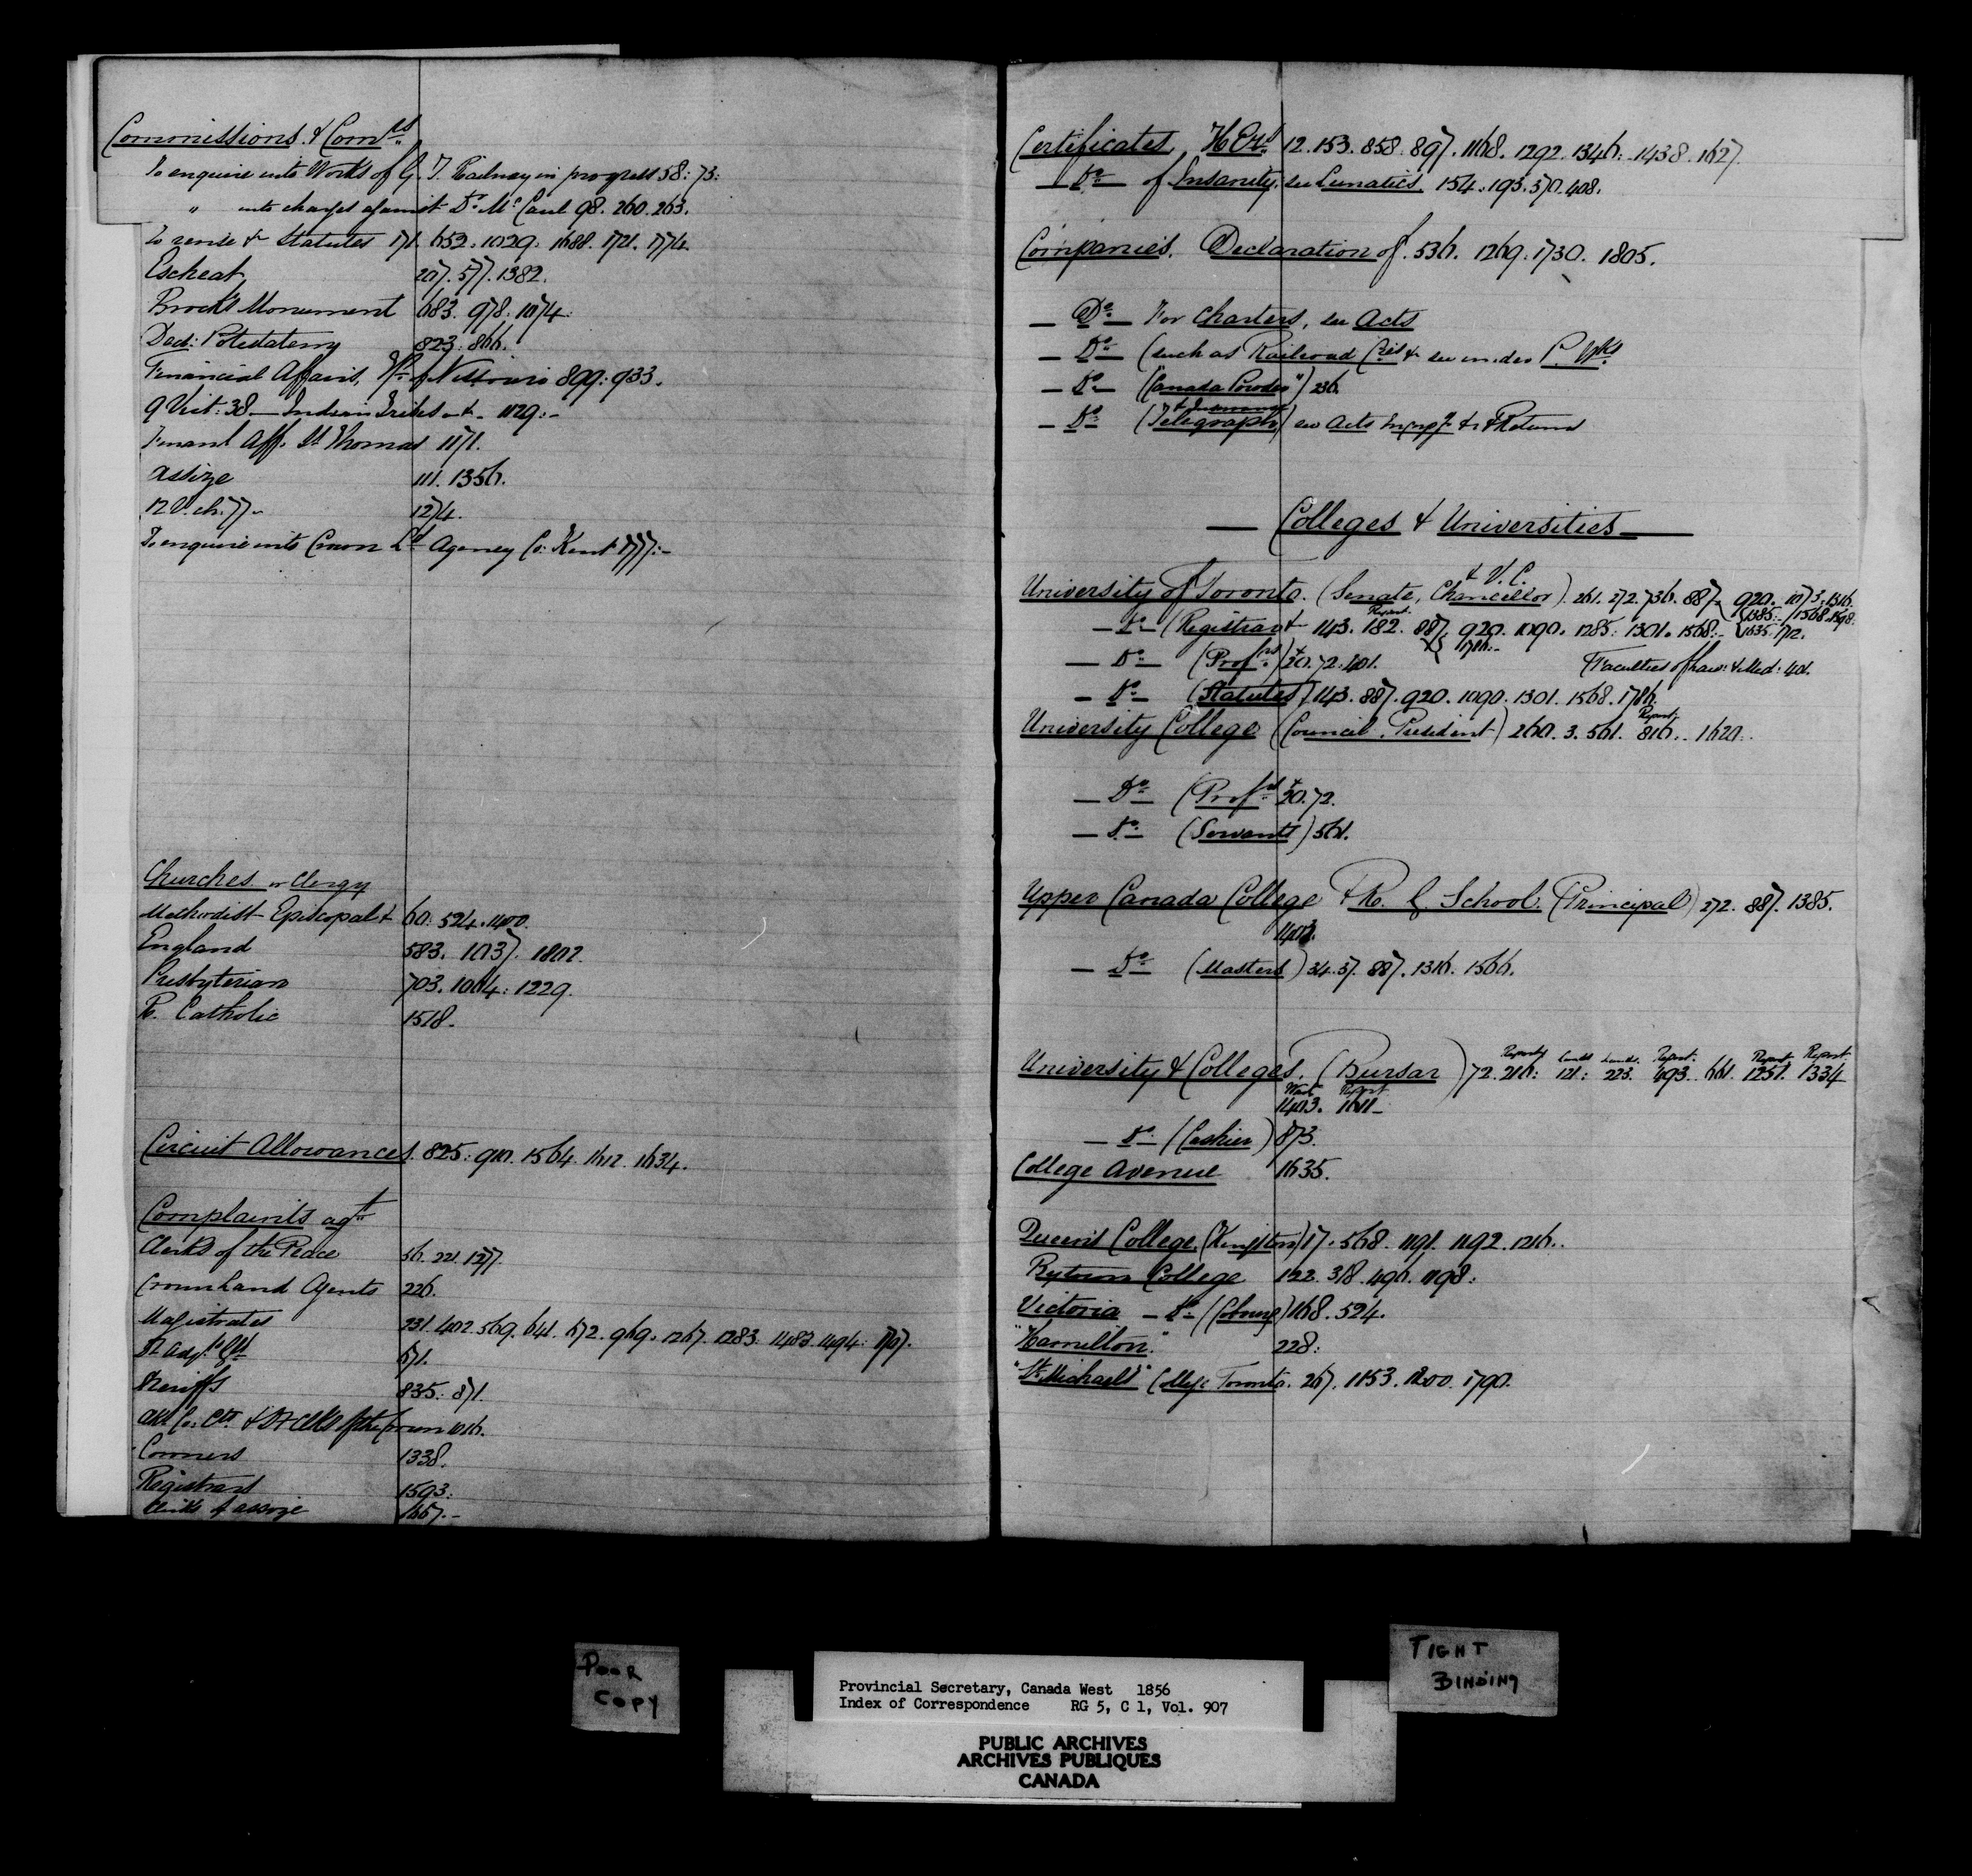 Commissions & Comrs
To enquire into Works of G. T. Railway in progress 58: 73:
" into charges against Dr. McCaul 98. 260. 263.
To revise &c Statutes 171. 652. 1029. 1688. 1721. 1774.
Escheat 207. 577. 1382.
Brock's Monument 683. 978. 1074.
Ded: Potestatem 823: 866.
Financial Affairs, of Nissouri 899: 933.
9 Vict: 38 — Indian Tribes &c. 1129:-
Financl Aff. St Thomas 1171.
Assize 111. 1356.
12 V. ch. 77- 1274.
To enquire into Crown Ld Agency Co: Kent 1777:-
Churches or Clergy
Methodist Episcopal & 60: 524. 1400.
England 583. 1037. 1802.
Presbyterian 703. 1064: 1229.
R. Catholic 1518.
Circuit Allowances. 825: 910. 1564. 1612. 1634.
Complaints agst
Clerks of the Peace 56. 221. 1277.
Crown Land Agents 226.
Magistrates 231. 402. 569. 641. 672. 969. 1267. 1283. 1483. 1494: 1767.
671.
Sheriffs 835: 871.
1016.
Coroners 1338.
Registrars 1593:
Clerks of assize 1657.-
Certificates, H Exs 12. 153. 858. 897. 1168. 1292. 1346: 1438. 1627.
— Do — of Insanity, see Lunatics. 154. 193. 370. 408.
Companies. Declaration of. 536. 1269. 1730. 1805.
— Do — For Charters, see Acts
— Do — (such as Railroad Cos &c see under P. Wks
— Do — ("Canada Powder") 236.
& Insurance
— Do — (Telegraph) see Acts & Returns
— Colleges & Universities —
& V. C.
University of Toronto. (Senate, Chancellor). 261. 272. 736. 887. 920. 1073. 1316.
1385.- 1568. 1598.
Report.
— Do — (Registrar &c 143. 182. 887. 920. 1090. 1285. 1301. 1568.- 1635. 1712.
1786.-
— Do — (Profrs) 20. 72. 401. Faculties of Law: & Med: 401.
— Do — (Statutes) 143. 887. 920. 1090. 1301. 1568. 1786.
Report
University College (Council, President) 260. 3. 561. 816. 1620.
— Do — (Profrs 20. 72.
— Do — (Servants) 561.
Upper Canada College & R. G. School. (Principal) 272. 887. 1385.
1403.
— Do — (Masters) 34. 37. 887. 1316. 1566.
Report Lands Lands. Report. Report Report.
University & Colleges, (Bursar) 72. 216: 121: 223. 493. 661. 1251. 1334
Report
1403. 1611-
— Do — (Cashier) 873.
College Avenue 1635.
Queen's College, (Kingston) 17. 568. 1191. 1192. 1216.
Bytown College 122. 318. 496. 1198:
Victoria — Do (Cobourg) 168. 524.
"Hamilton" 228:
"St. Michael's" College Toronto. 267. 1153. 1200. 1790.
POOR
COPY
TIGHT
BINDING
Provincial Secretary, Canada West 1856
Index of Correspondence RG 5, C 1, Vol. 907
PUBLIC ARCHIVES
ARCHIVES PUBLIQUES
CANADA